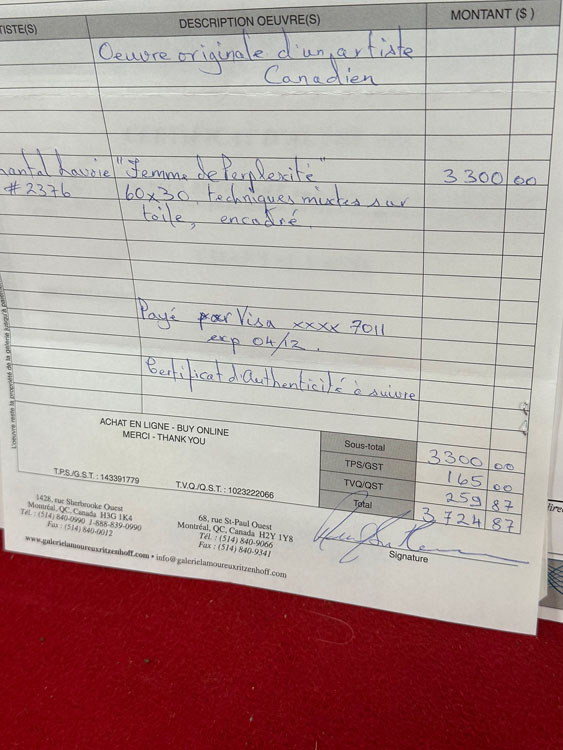 TISTE(S) DESCRIPTION OEUVRE(S) MONTANT ($)
Oeuvre originale d'un artiste
Canadien
hantal Lavoie "Femme de Perplexité" 3300 00
#2376 60x30, techniques mixtes sur
toile, encadré.
Payé pour Visa xxxx 7011
exp 04/12.
Certificat d'Authenticité à suivre
L'oeuvre reste la propriété de la galerie jusqu'à
ACHAT EN LIGNE - BUY ONLINE
MERCI - THANK YOU
T.P.S./G.S.T. : 143391779 T.V.Q./Q.S.T. : 1023222066
Sous-total 3300 00
TPS/GST 165 00
TVQ/QST 259 87
Total 3724 87
Signature
1428, rue Sherbrooke Ouest
Montréal, QC, Canada H3G 1K4
Tél. : (514) 840-9990 1-888-839-0990
Fax : (514) 840-0012
68, rue St-Paul Ouest
Montréal, QC, Canada H2Y 1Y8
Tél. : (514) 840-9066
Fax : (514) 840-9341
www.galerielamoureuxritzenhoff.com • info@galerielamoureuxritzenhoff.com